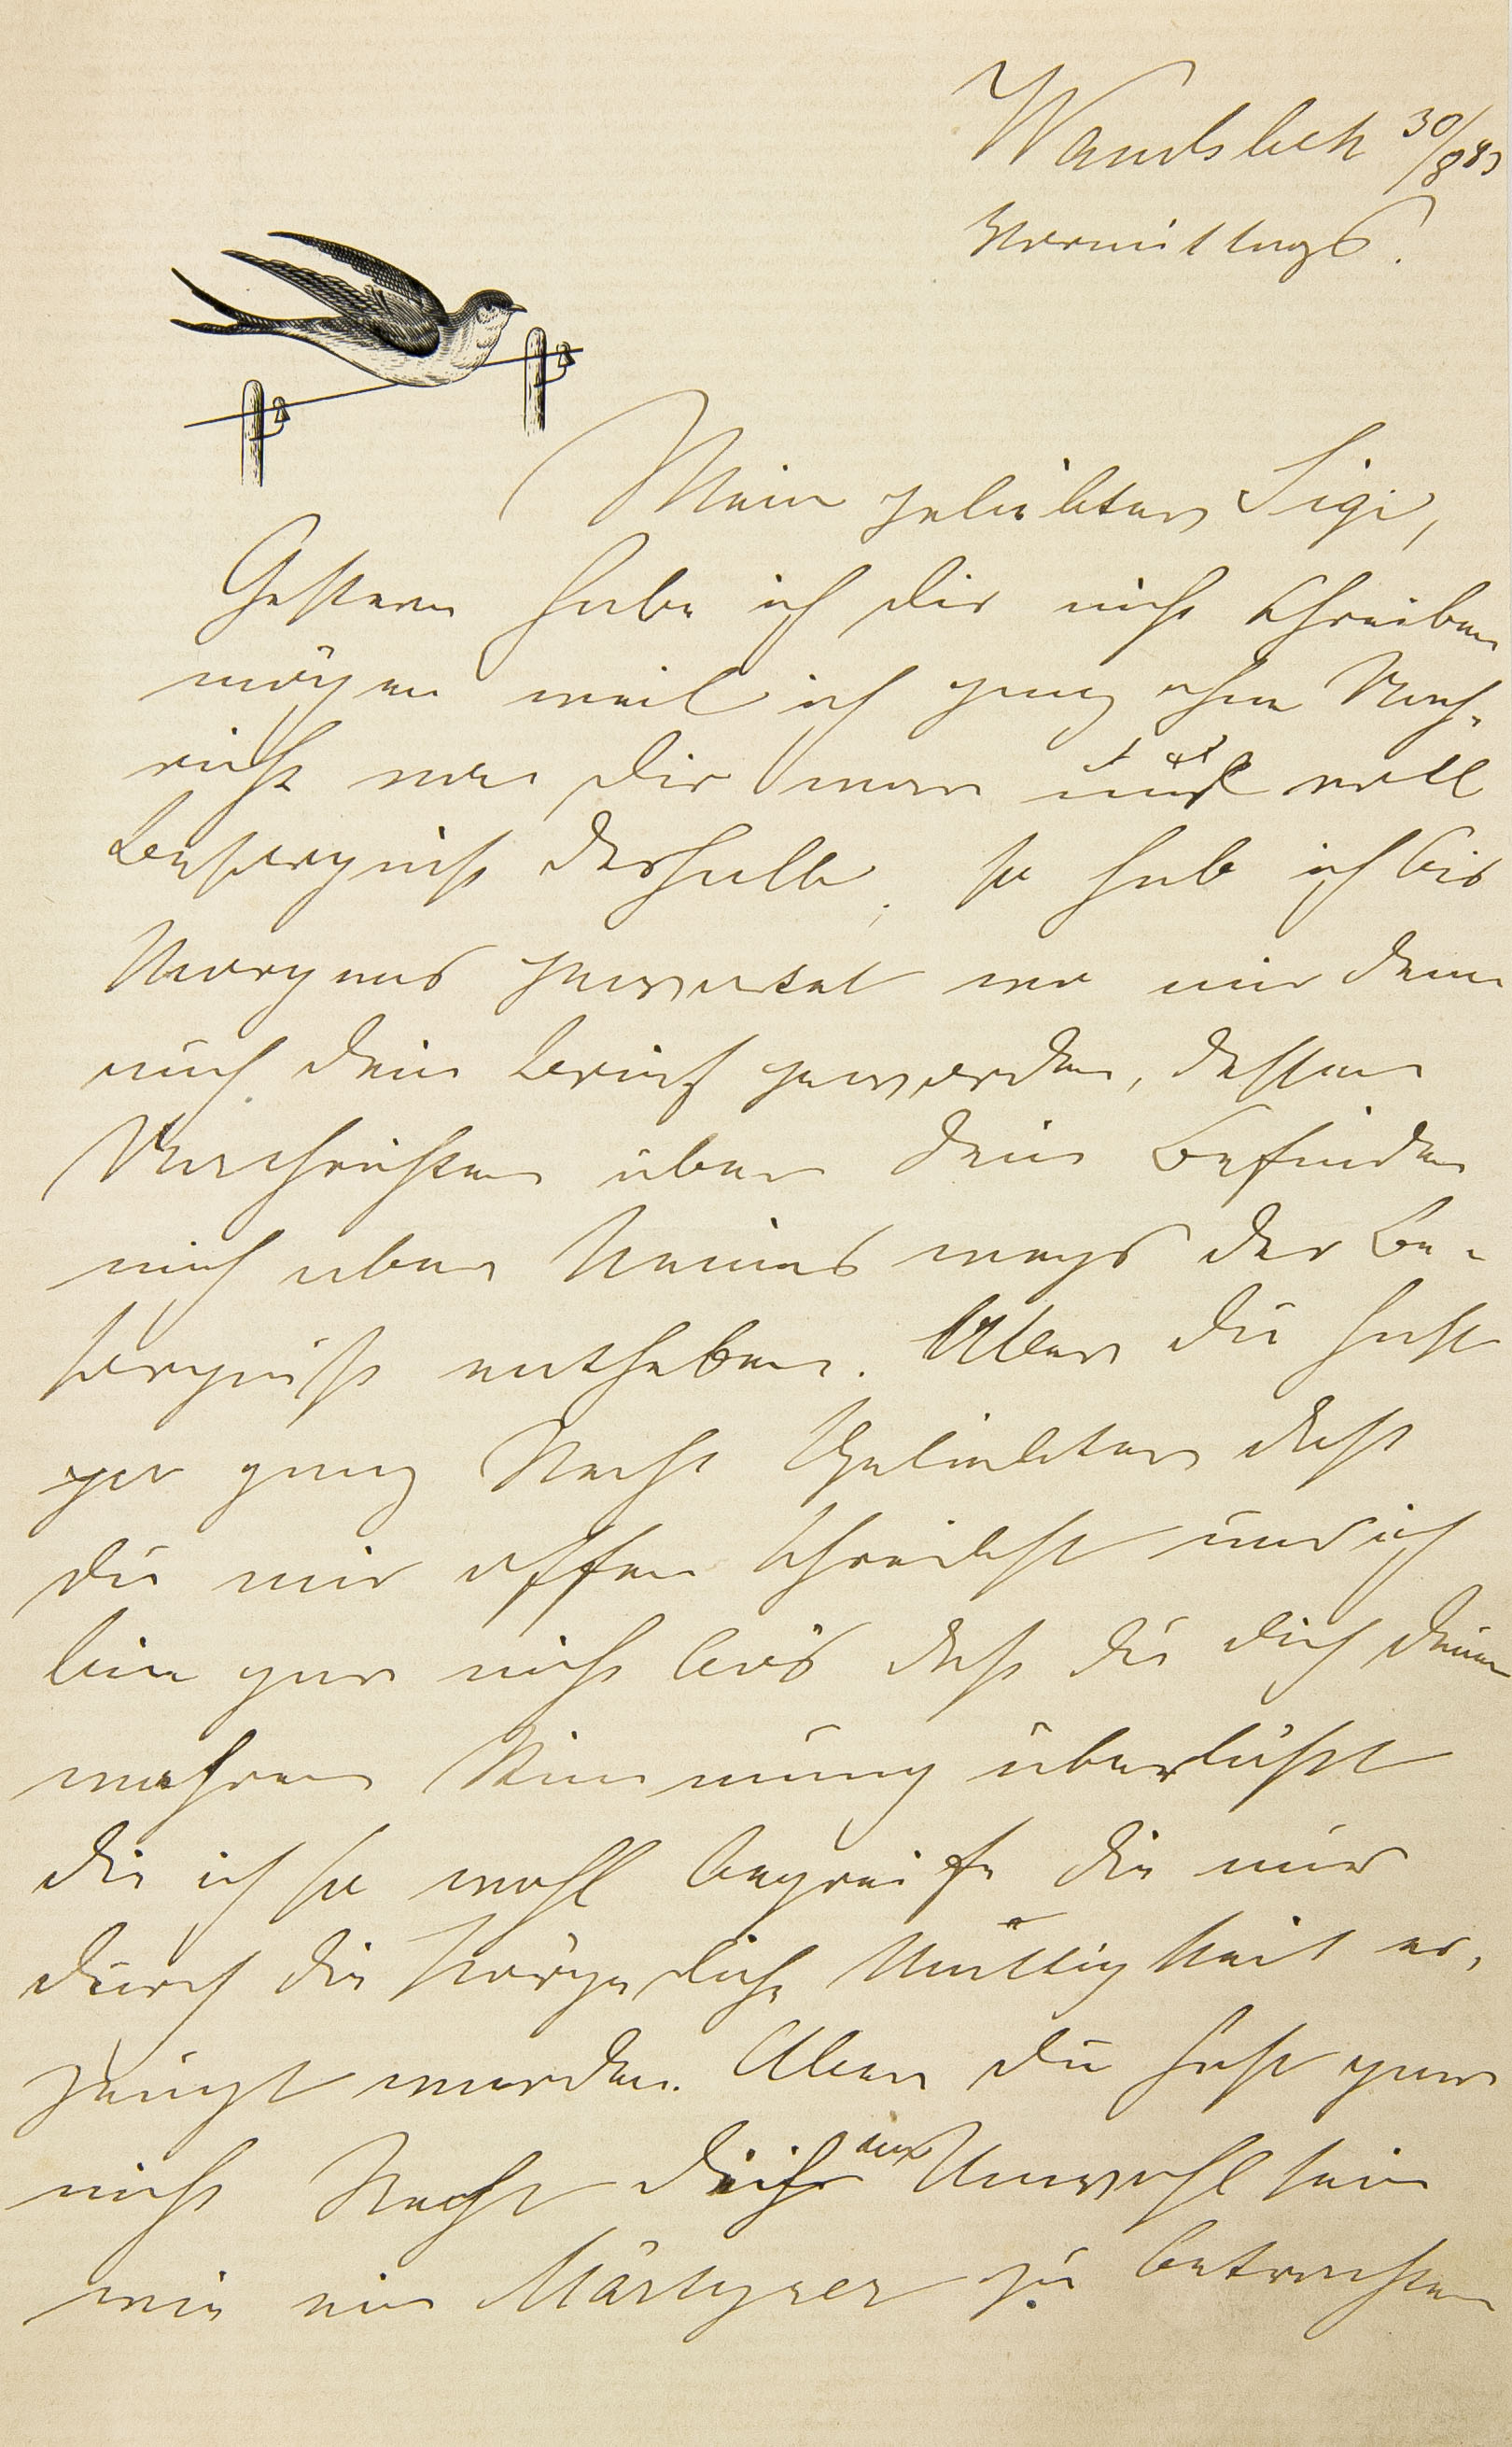 Wandsbek 30/8 83
Vormittags.
Mein geliebter Sigi,
Gestern habe ich dir nicht schreiben
mögen weil ich ganz ohne Nach-
richt von dir war und voll
Besorgniß deshalb, so hab ich bis
Morgens gewartet wo mir denn
auch dein Brief geworden, dessen
Nachrichten über dein Befinden
mich aber keines wegs der Be-
sorgniß entheben. Aber du hast
ja ganz Recht Geliebter daß
du mir offen schreibst und ich
bin gar nicht bös daß du dich deiner
wahren Stimmung überläßt
die ich so wohl begreife die nur
durch die körperliche Mattigkeit er-
zeugt worden. Aber du hast gar
nicht Recht dich Unwohlsein
wie ein Märtyrer zu betrachten